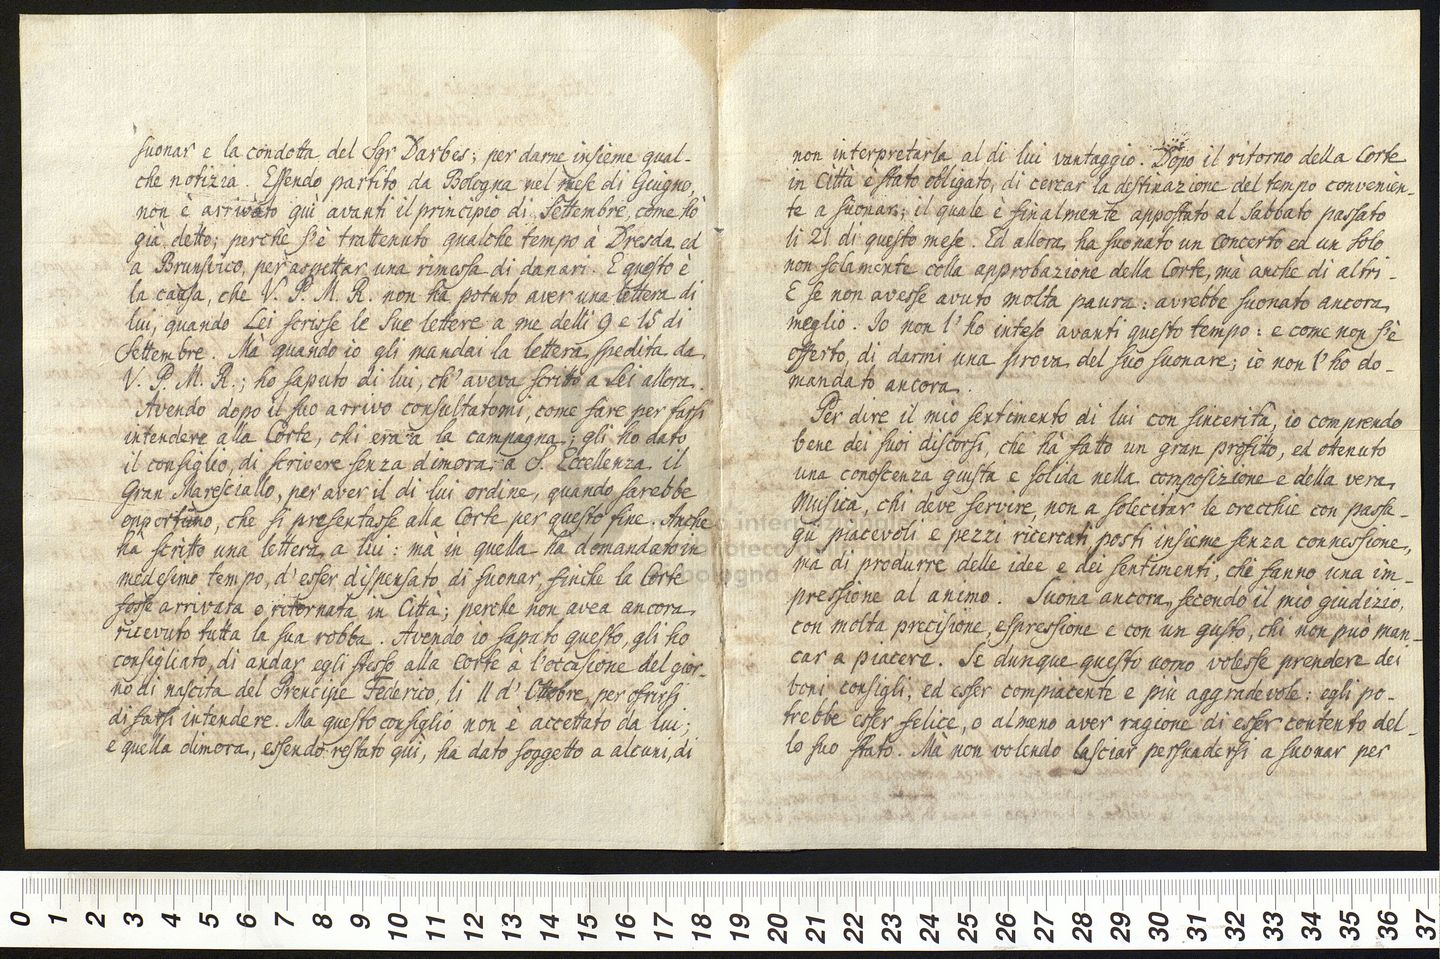 suonar e la condotta del Sgr Darbes; per darne insieme qual-
che notizia. Essendo partito da Bologna nel mese di Giugno,
non è arrivato quì avanti il principio di Settembre, come hò
già detto; perche s'è trattenuto qualche tempo à Dresda, ed
a Brunsvico, per aspettar una rimessa di danari. E questo è
la causa, che V. P. M. R. non ha potuto aver una lettera di
lui, quando Lei scrisse le Sue lettere a me delli 9 e 15 di
Settembre. Mà quando io gli mandai la lettera, spedita da
V. P. M. R.; ho saputo di lui, ch'aveva scritto a Lei allora.
Avendo dopo il suo arrivo consultatomi, come fare per farsi
intendere alla Corte, chi era a la campagna; gli ho dato
il consiglio, di scrivere senza dimora, a S. Eccellenza il
Gran Maresciallo, per aver il di lui ordine, quando sarebbe
opportuno, che si presentasse alla Corte per questo fine. Anche
hà scritto una lettera a lui: mà in quella ha domandato in
medesimo tempo, d'esser dispensato di suonar, finche la Corte
fosse arrivata o ritornata in Città; perche non avea ancora
ricevuto tutta la sua robba. Avendo io saputo questo, gli ho
consigliato, di andar egli stesso alla Corte à l'occasione del gior-
no di nascita del Prencipe Federico, li 11 d'Ottobre, per ofrirsi
di farsi intendere. Ma questo consiglio non è accettato da lui;
e quella dimora, essendo restato quì, ha dato soggetto a alcuni, di
non interpretarla al di lui vantaggio. Dopo il ritorno della Corte
in Città è stato obligato, di cercar la destinazione del tempo convenien-
te a suonar; il quale è finalmente appostato al Sabbato passato
li 21 di questo mese. Ed allora, ha suonato un Concerto ed un Solo
non solamente colla approbazione della Corte, mà anche di altri.
E se non avesse avuto molta paura: avrebbe suonato ancora
meglio. Io non l'ho inteso avanti questo tempo: e come non s'è
offerto, di darmi una prova del suo suonare; io non l'ho do-
mandato ancora.
Per dire il mio sentimento di lui con sincerità, io comprendo
bene dei suoi discorsi, che hà fatto un gran profitto, ed ottenuto
una conoscenza giusta e solida nella composizione e della vera
Musica, chi deve servire, non a solecitar le orecchie con passa-
gi piacevoli e pezzi ricercati posti insieme senza connessione,
ma di produrre delle idee e dei sentimenti, che fanno una im-
pressione al animo. Suona ancora, secondo il mio giudizio,
con molta precisione, espressione e con un gusto, chi non può man-
car a piacere. Se dunque questo uomo volesse prendere dei
boni consigli; ed esser compiacente e più aggradevole: egli po-
trebbe esser felice, o almeno aver ragione di esser contento del-
lo suo stato. Mà non volendo lasciar persuadersi a suonar per
museo internazionale
e biblioteca della musica
di bologna
0 1 2 3 4 5 6 7 8 9 10 11 12 13 14 15 16 17 18 19 20 21 22 23 24 25 26 27 28 29 30 31 32 33 34 35 36 37